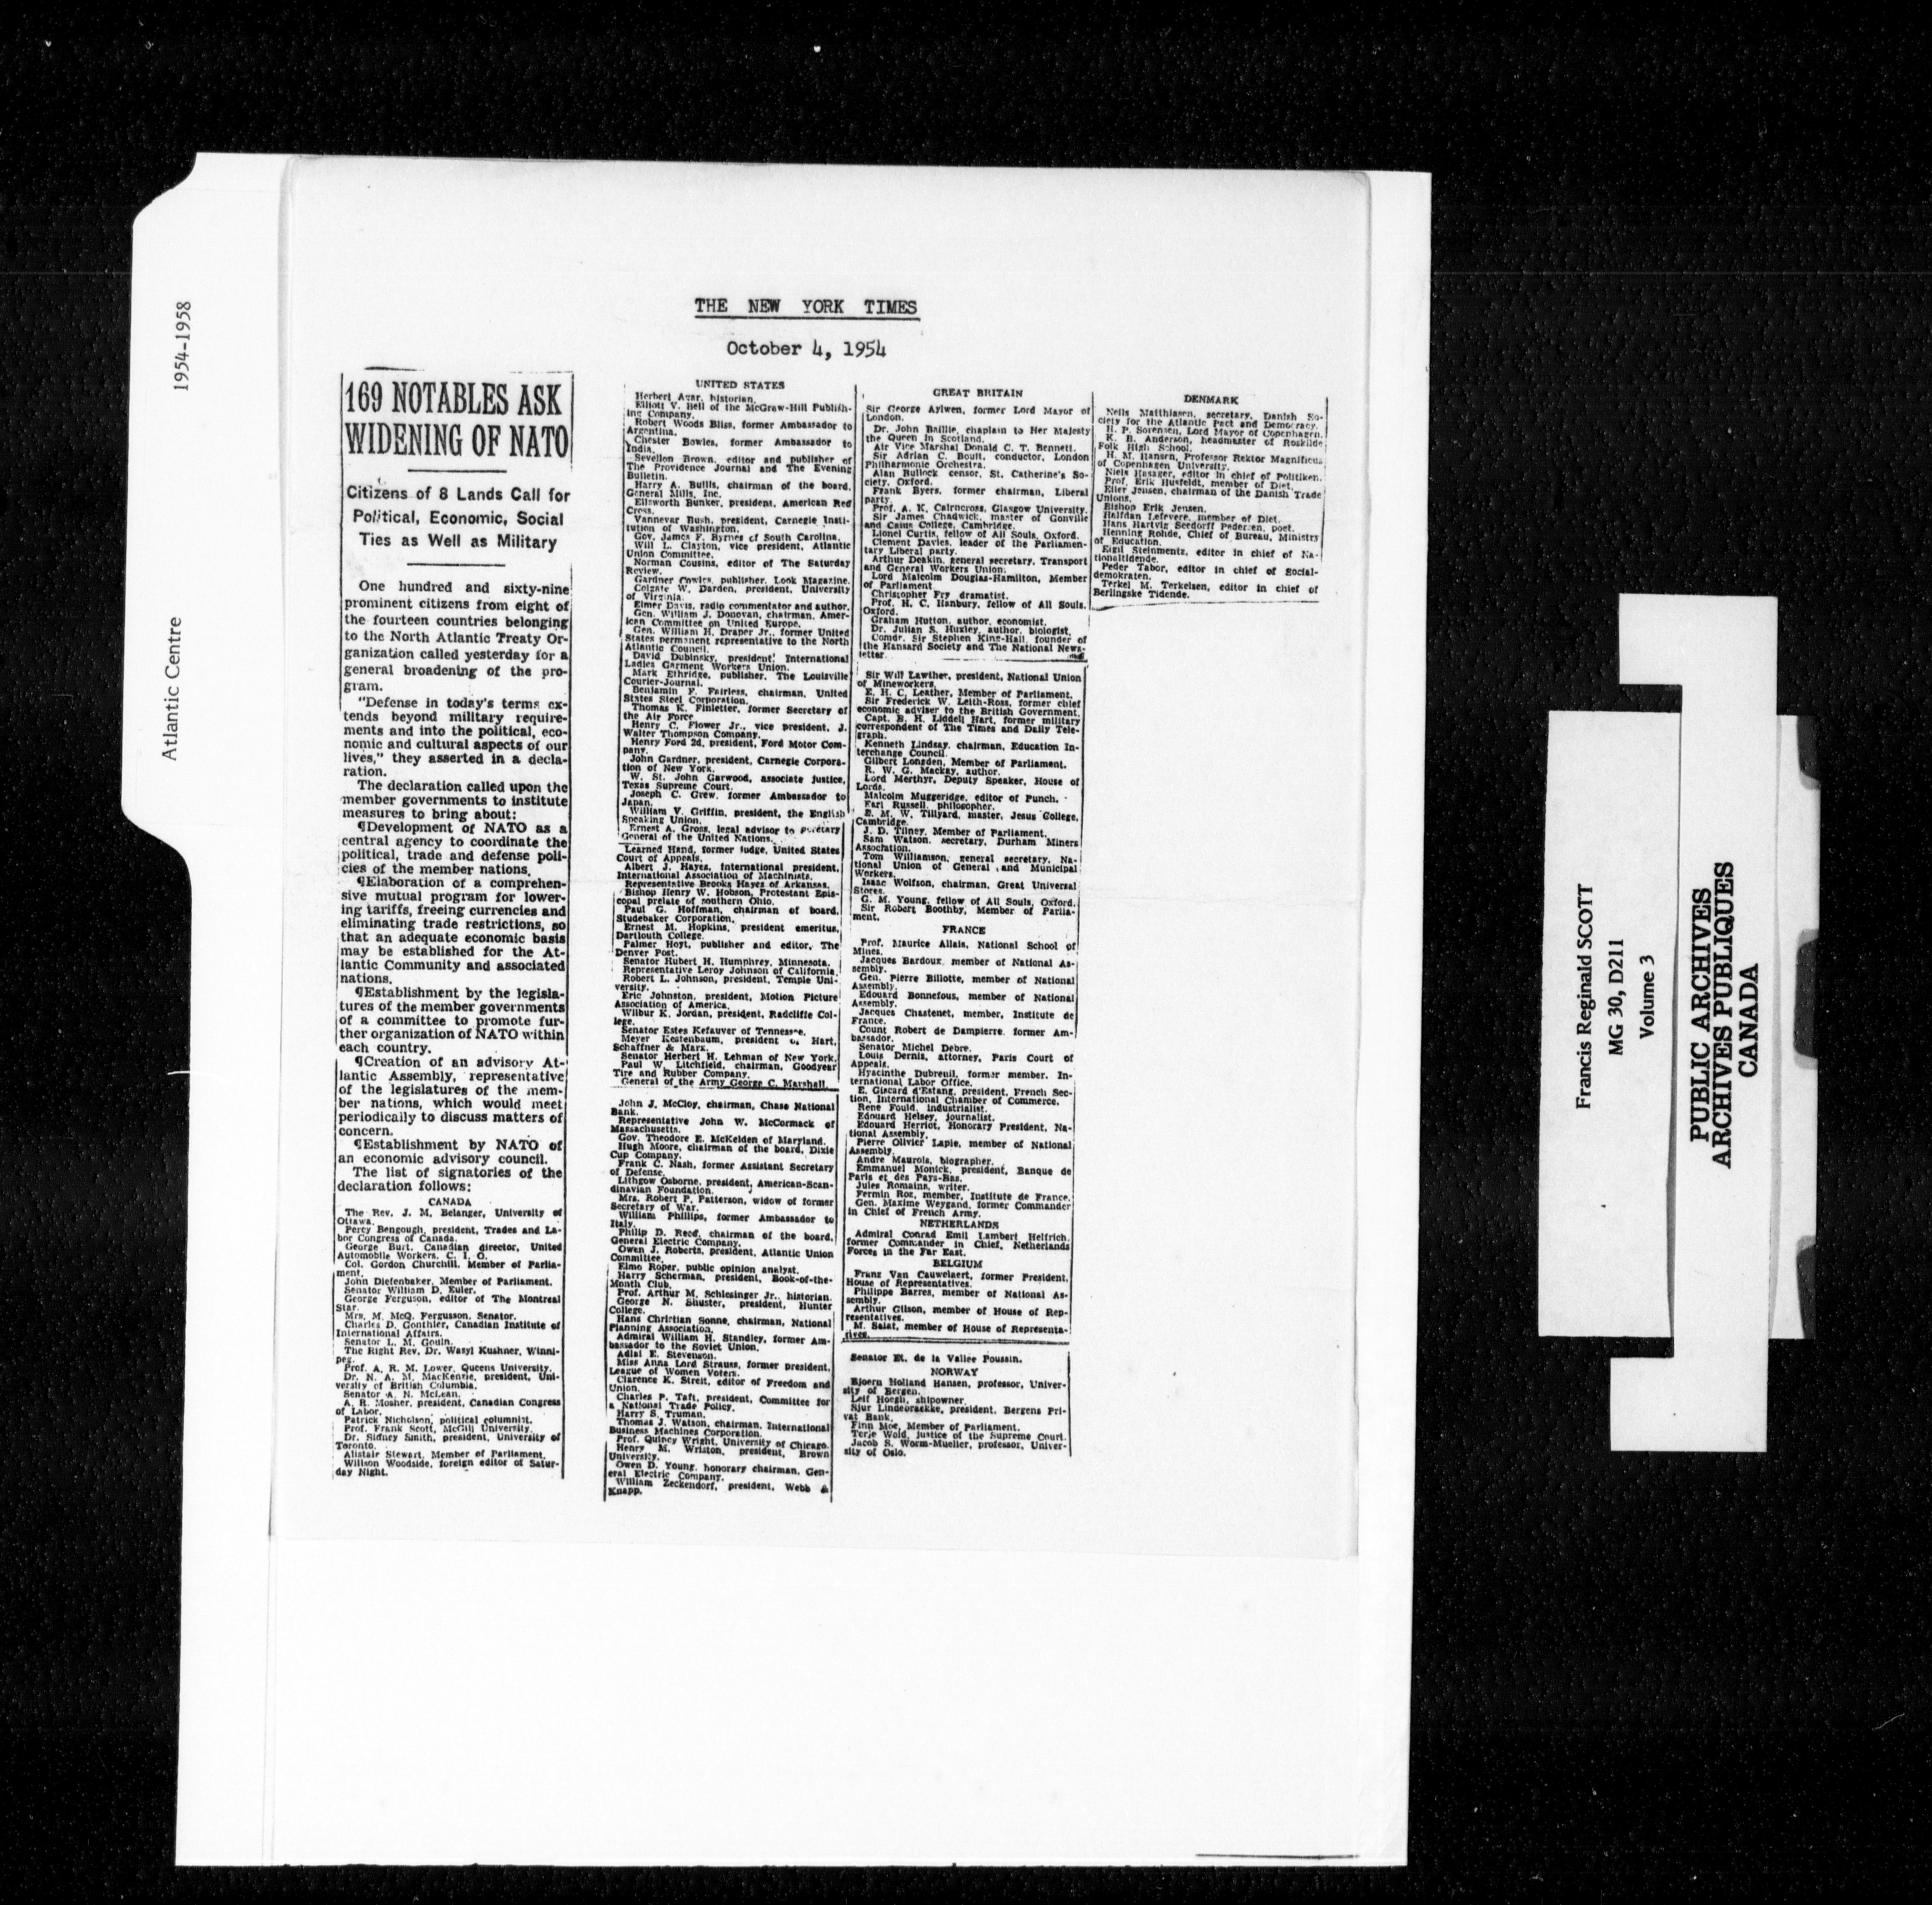 1954-1958
Atlantic Centre
THE NEW YORK TIMES
October 4, 1954
169 NOTABLES ASK
WIDENING OF NATO
Citizens of 8 Lands Call for
Political, Economic, Social
Ties as Well as Military
One hundred and sixty-nine
prominent citizens from eight of
the fourteen countries belonging
to the North Atlantic Treaty Or-
ganization called yesterday for a
general broadening of the pro-
gram.
"Defense in today's terms ex-
tends beyond military require-
ments and into the political, eco-
nomic and cultural aspects of our
lives," they asserted in a decla-
ration.
The declaration called upon the
member governments to institute
measures to bring about:
¶Development of NATO as a
central agency to coordinate the
political, trade and defense poli-
cies of the member nations.
¶Elaboration of a comprehen-
sive mutual program for lower-
ing tariffs, freeing currencies and
eliminating trade restrictions, so
that an adequate economic basis
may be established for the At-
lantic Community and associated
nations.
¶Establishment by the legisla-
tures of the member governments
of a committee to promote fur-
ther organization of NATO within
each country.
¶Creation of an advisory At-
lantic Assembly, representative
of the legislatures of the mem-
ber nations, which would meet
periodically to discuss matters of
concern.
¶Establishment by NATO of
an economic advisory council.
The list of signatories of the
declaration follows:
CANADA
The Rev. J. M. Belanger, University of
Ottawa.
Percy Bengough, president, Trades and La-
bor Congress of Canada.
George Burt, Canadian director, United
Automobile Workers, C. I. O.
Col. Gordon Churchill, Member of Parlia-
ment.
John Diefenbaker, Member of Parliament.
Senator William D. Euler.
George Ferguson, editor of The Montreal
Star.
Mrs. M. McQ. Fergusson, Senator.
Charles D. Gonthier, Canadian Institute of
International Affairs.
Senator L. M. Gouin.
The Right Rev. Dr. Wasyl Kushner, Winni-
peg.
Prof. A. R. M. Lower, Queens University.
Dr. N. A. M. MacKenzie, president, Uni-
versity of British Columbia.
Senator A. N. McLean.
A. R. Mosher, president, Canadian Congress
of Labor.
Patrick Nicholson, political columnist.
Prof. Frank Scott, McGill University.
Dr. Sidney Smith, president, University of
Toronto.
Alistair Stewart, Member of Parliament.
Willson Woodside, foreign editor of Satur-
day Night.
UNITED STATES
Herbert Agar, historian.
Elliott V. Bell of the McGraw-Hill Publish-
ing Company.
Robert Woods Bliss, former Ambassador to
Argentina.
Chester Bowles, former Ambassador to
India.
Sevellon Brown, editor and publisher of
The Providence Journal and The Evening
Bulletin.
Harry A. Bullis, chairman of the board,
General Mills, Inc.
Ellsworth Bunker, president, American Red
Cross.
Vannevar Bush, president, Carnegie Insti-
tution of Washington.
Gov. James F. Byrnes of South Carolina.
Will L. Clayton, vice president, Atlantic
Union Committee.
Norman Cousins, editor of The Saturday
Review.
Gardner Cowles, publisher, Look Magazine.
Colgate W. Darden, president, University
of Virginia.
Elmer Davis, radio commentator and author.
Gen. William J. Donovan, chairman, Amer-
ican Committee on United Europe.
Gen. William H. Draper Jr., former United
States permanent representative to the North
Atlantic Council.
David Dubinsky, president, International
Ladies Garment Workers Union.
Mark Ethridge, publisher, The Louisville
Courier-Journal.
Benjamin F. Fairless, chairman, United
States Steel Corporation.
Thomas K. Finletter, former Secretary of
the Air Force
Henry C. Flower Jr., vice president, J.
Walter Thompson Company.
Henry Ford 2d, president, Ford Motor Com-
pany.
John Gardner, president, Carnegie Corpora-
tion of New York.
W. St. John Garwood, associate justice,
Texas Supreme Court.
Joseph C. Grew, former Ambassador to
Japan.
William V. Griffin, president, the English
Speaking Union.
Ernest A. Gross, legal advisor to
General of the United Nations.
Learned Hand, former judge, United States
Court of Appeals.
Albert J. Hayes, international president,
International Association of Machinists.
Representative Brooks Hayes of Arkansas.
Bishop Henry W. Hobson, Protestant Epis-
copal prelate of southern Ohio.
Paul G. Hoffman, chairman of board,
Studebaker Corporation.
Ernest M. Hopkins, president emeritus,
Dartmouth College.
Palmer Hoyt, publisher and editor, The
Denver Post.
Senator Hubert H. Humphrey, Minnesota.
Representative Leroy Johnson of California.
Robert L. Johnson, president, Temple Uni-
versity.
Eric Johnston, president, Motion Picture
Association of America.
Wilbur K. Jordan, president, Radcliffe Col-
lege.
Senator Estes Kefauver of Tennessee.
Meyer Kestenbaum, president of Hart,
Schaffner & Marx.
Senator Herbert H. Lehman of New York.
Paul W. Litchfield, chairman, Goodyear
Tire and Rubber Company.
General of the Army George C. Marshall.
John J. McCloy, chairman, Chase National
Bank.
Representative John W. McCormack of
Massachusetts.
Gov. Theodore E. McKelden of Maryland.
Hugh Moore, chairman of the board, Dixie
Cup Company.
Frank C. Nash, former Assistant Secretary
of Defense.
Lithgow Osborne, president, American-Scan-
dinavian Foundation.
Mrs. Robert P. Patterson, widow of former
Secretary of War.
William Phillips, former Ambassador to
Italy.
Philip D. Reed, chairman of the board,
General Electric Company.
Owen J. Roberts, president, Atlantic Union
Committee.
Elmo Roper, public opinion analyst.
Harry Scherman, president, Book-of-the-
Month Club.
Prof. Arthur M. Schlesinger Jr., historian.
George N. Shuster, president, Hunter
College.
Hans Christian Sonne, chairman, National
Planning Association.
Admiral William H. Standley, former Am-
bassador to the Soviet Union.
Adlai E. Stevenson.
Miss Anna Lord Strauss, former president,
League of Women Voters.
Clarence K. Streit, editor of Freedom and
Union.
Charles P. Taft, president, Committee for
a National Trade Policy.
Harry S. Truman.
Thomas J. Watson, chairman, International
Business Machines Corporation.
Prof. Quincy Wright, University of Chicago.
Henry M. Wriston, president, Brown
University.
Owen D. Young, honorary chairman, Gen-
eral Electric Company.
William Zeckendorf, president, Webb &
Knapp.
GREAT BRITAIN
Sir George Aylwen, former Lord Mayor of
London.
Dr. John Baillie, chaplain to Her Majesty
the Queen in Scotland.
Air Vice Marshal Donald C. T. Bennett.
Sir Adrian C. Boult, conductor, London
Philharmonic Orchestra.
Alan Bullock censor, St. Catherine's So-
ciety, Oxford.
Frank Byers, former chairman, Liberal
party.
Prof. A. K. Cairncross, Glasgow University.
Sir James Chadwick, master of Gonville
and Caius College, Cambridge.
Lionel Curtis, fellow of All Souls, Oxford.
Clement Davies, leader of the Parliamen-
tary Liberal party.
Arthur Deakin, general secretary, Transport
and General Workers Union.
Lord Malcolm Douglas-Hamilton, Member
of Parliament
Christopher Fry dramatist.
Prof. H. C. Hanbury, fellow of All Souls,
Oxford.
Graham Hutton, author, economist.
Dr. Julian S. Huxley, author, biologist.
Comdr. Sir Stephen King-Hall, founder of
the Hansard Society and The National News-
letter.
Sir Will Lawther, president, National Union
of Mineworkers.
E. H. C. Leather, Member of Parliament.
Sir Frederick W. Leith-Ross, former chief
economic adviser to the British Government.
Capt. B. H. Liddell Hart, former military
correspondent of The Times and Daily Tele-
graph.
Kenneth Lindsay, chairman, Education In-
terchange Council.
Gilbert Longden, Member of Parliament.
R. W. G. Mackay, author.
Lord Merthyr, Deputy Speaker, House of
Lords.
Malcolm Muggeridge, editor of Punch.
Earl Russell, philosopher.
E. M. W. Tillyard, master, Jesus College,
Cambridge.
J. D. Tilney, Member of Parliament.
Sam Watson, secretary, Durham Miners
Association.
Tom Williamson, general secretary, Na-
tional Union of General and Municipal
Workers.
Isaac Wolfson, chairman, Great Universal
Stores.
G. M. Young, fellow of All Souls, Oxford.
Sir Robert Boothby, Member of Parlia-
ment.
FRANCE
Prof. Maurice Allais, National School of
Mines.
Jacques Bardoux, member of National As-
sembly.
Gen. Pierre Billotte, member of National
Assembly.
Edouard Bonnefous, member of National
Assembly.
Jacques Chastenet, member, Institute de
France.
Count Robert de Dampierre, former Am-
bassador.
Senator Michel Debre.
Louis Dernis, attorney, Paris Court of
Appeals.
Hyacinthe Dubreuil, former member, In-
ternational Labor Office.
E. Giscard d'Estang, president, French Sec-
tion, International Chamber of Commerce.
Rene Fould, industrialist.
Edouard Helsey, journalist.
Edouard Herriot, Honorary President, Na-
tional Assembly.
Pierre Olivier Lapie, member of National
Assembly.
Andre Maurois, biographer.
Emmanuel Monick, president, Banque de
Paris et des Pays-Bas.
Jules Romains, writer.
Fermin Roz, member, Institute de France.
Gen. Maxime Weygand, former Commander
in Chief of French Army.
NETHERLANDS
Admiral Conrad Emil Lambert Helfrich,
former Commander in Chief, Netherlands
Forces in the Far East.
BELGIUM
Franz Van Cauwelaert, former President,
House of Representatives.
Philippe Barres, member of National As-
sembly.
Arthur Gilson, member of House of Rep-
resentatives.
M. Salat, member of House of Representa-
tives.
Senator Et. de la Vallee Poussin.
NORWAY
Bjoern Holland Hansen, professor, Univer-
sity of Bergen.
Leif Hoegh, shipowner.
Sjur Lindebraekke, president, Bergens Pri-
vat Bank.
Finn Moe, Member of Parliament.
Terje Wold, justice of the Supreme Court.
Jacob S. Worm-Mueller, professor, Univer-
sity of Oslo.
DENMARK
Neils Matthiasen, secretary, Danish So-
ciety for the Atlantic Pact and Democracy.
H. P. Sorensen, Lord Mayor of Copenhagen.
K. B. Anderson, headmaster of Roskilde
Folk High School.
H. M. Hansen, Professor Rektor Magnificus
of Copenhagen University.
Niels Hasager, editor in chief of Politiken.
Prof. Erik Husfeldt, member of Diet.
Eiler Jensen, chairman of the Danish Trade
Unions.
Bishop Erik Jensen.
Halfdan Lefevere, member of Diet.
Hans Hartvig Seedorff Pedersen, poet.
Henning Rohde, Chief of Bureau, Ministry
of Education.
Eigil Steinmentz, editor in chief of Na-
tionaltidende.
Peder Tabor, editor in chief of Social-
demokraten.
Terkel M. Terkelsen, editor in chief of
Berlingske Tidende.
Francis Reginald SCOTT
MG 30, D211
Volume 3
PUBLIC ARCHIVES
ARCHIVES PUBLIQUES
CANADA